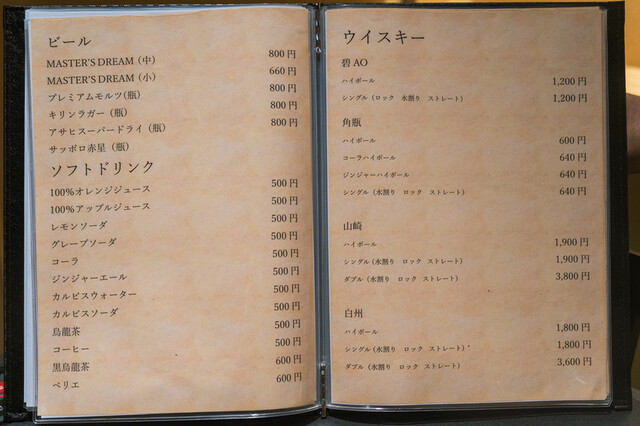 ビール
MASTER'S DREAM（中） 800円
MASTER'S DREAM（小） 660円
プレミアムモルツ(瓶) 800円
キリンラガー（瓶） 800円
アサヒスーパードライ（瓶） 800円
サッポロ赤星（瓶）
ソフトドリンク
100%オレンジジュース 500円
100%アップルジュース 500円
レモンソーダ 500円
グレープソーダ 500円
コーラ 500円
ジンジャーエール 500円
カルピスウォーター 500円
カルピスソーダ 500円
烏龍茶 500円
コーヒー 500円
黒烏龍茶 600円
ペリエ 600円
ウイスキー
碧 AO
ハイボール 1,200円
シングル（ロック 水割り ストレート） 1,200円
角瓶
ハイボール 600円
コーラハイボール 640円
ジンジャーハイボール 640円
シングル（水割り ロック ストレート） 640円
山崎
ハイボール 1,900円
シングル（水割り ロック ストレート） 1,900円
ダブル（水割り ロック ストレート） 3,800円
白州
ハイボール 1,800円
シングル（水割り ロック ストレート） 1,800円
ダブル（水割り ロック ストレート） 3,600円